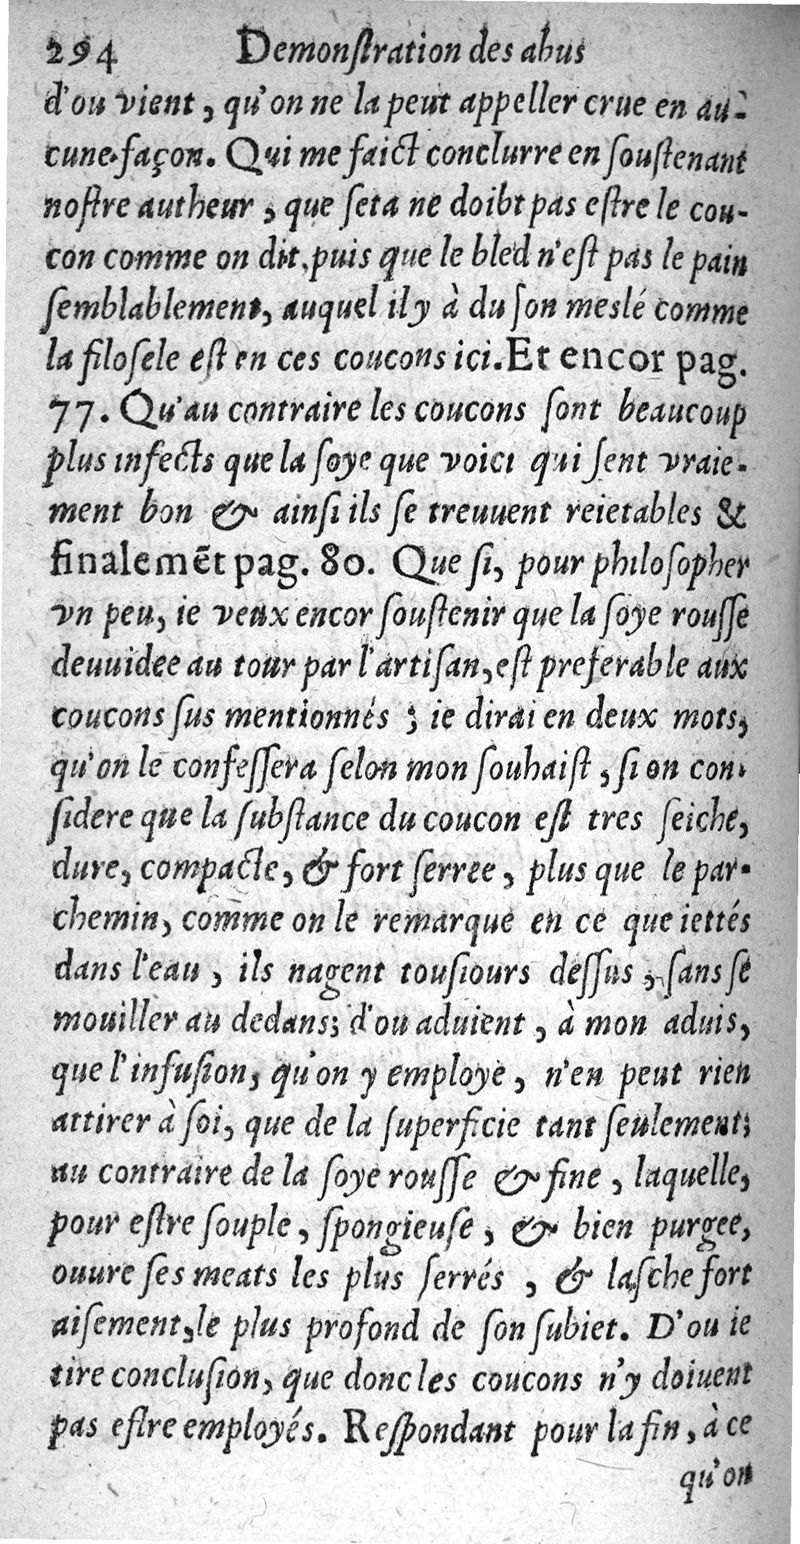 294 Demonſtration des abus
d'ou vient, qu'on ne la peut appeller crue en au-
cune façon. Qui me faict conclurre en ſouſtenant
noſtre autheur, que ſeta ne doibt pas eſtre le cou-
con comme on dit, puis que le bled n'eſt pas le pain
ſemblablement, auquel il y à du ſon meslé comme
la filoſele eſt en ces coucons ici. Et encor pag.
77. Qu'au contraire les coucons ſont beaucoup
plus infects que la ſoye que voici qui ſent vraie-
ment bon & ainſi ils ſe treuuent reietables &
finalemēt pag. 80. Que ſi, pour philoſopher
vn peu, ie veux encor ſouſtenir que la ſoye rouſſe
deuuidee au tour par l'artiſan, eſt preferable aux
coucons ſus mentionnés ; ie dirai en deux mots,
qu'on le confeſſera ſelon mon ſouhaiſt, ſi on con-
ſidere que la ſubſtance du coucon eſt tres ſeiche,
dure, compacte, & fort ſerree, plus que le par-
chemin, comme on le remarque en ce que iettés
dans l'eau, ils nagent touſiours deſſus, ſans ſe
mouiller au dedans; d'ou aduient, à mon aduis,
que l'infuſion, qu'on y employe, n'en peut rien
attirer à ſoi, que de la ſuperficie tant ſeulement;
au contraire de la ſoye rouſſe & fine, laquelle,
pour eſtre ſouple, ſpongieuſe, & bien purgee,
ouure ſes meats les plus ſerrés, & laſche fort
aiſement, le plus profond de ſon ſubiet. D'ou ie
tire concluſion, que donc les coucons n'y doiuent
pas eſtre employés. Reſpondant pour la fin, à ce
qu'on